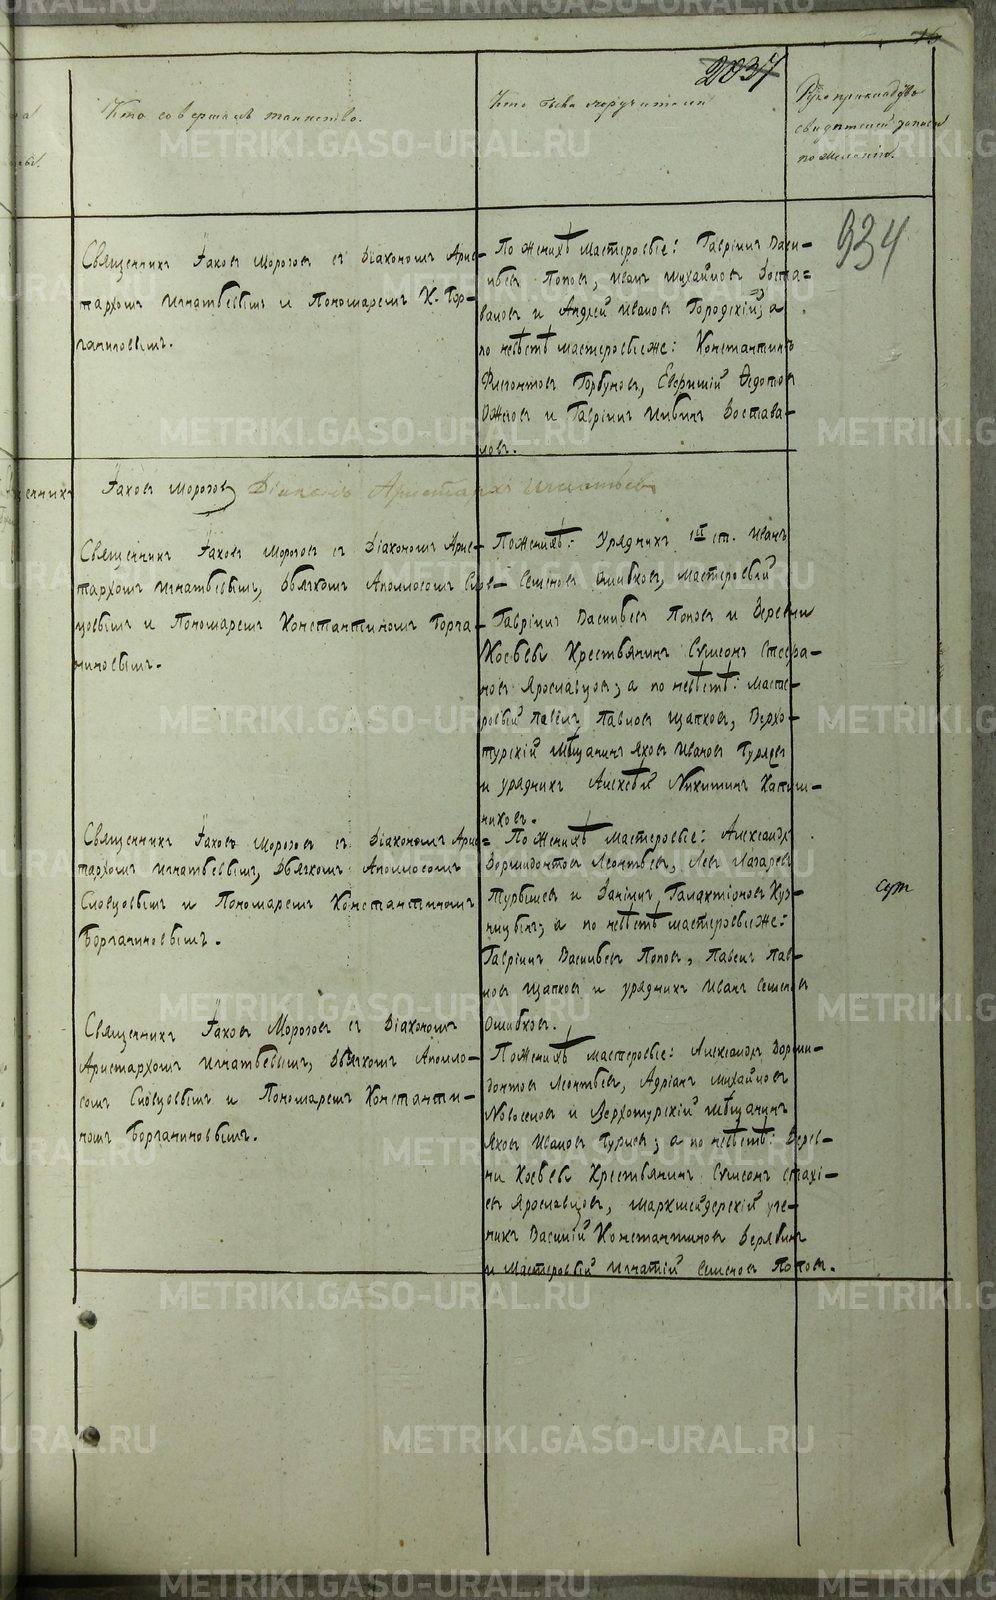 2034
Кто совершалъ таинство.
Кто былъ поручителемъ
Рукоприкладство
свидетелей записи
по желанію.
934
Священникъ Іаковъ Морозовъ съ Діакономъ Арис-
тархомъ Игнатьевымъ и Пономаремъ К. Гор-
ганиновымъ.
По женихѣ мастеровые: Гавріилъ Васи-
льевъ Поповъ, Иванъ Михайловъ Воста-
валовъ и Андрей Ивановъ Городскій; а
по невѣстѣ мастеровые же: Константинъ
Горбуновъ, Федотовъ
и Гавріилъ Востава-
ловъ.
Іаковъ Морозовъ Діаконъ Аристархъ Игнатьевъ
Священникъ Іаковъ Морозовъ съ Діакономъ Арис-
тархомъ Игнатьевымъ, Дьячкомъ Аполлосомъ Слов-
цовымъ и Пономаремъ Константиномъ Горга-
ниновымъ.
По женихѣ: Урядникъ ст. Иванъ
Семеновъ Ошибковъ, мастеровой
Гавріилъ Васильевъ Поповъ и деревни
Крестьянинъ Сумеонъ Стефа-
новъ Ярославцовъ; а по невѣстѣ: Масте-
ровый Павелъ Павловъ Щапковъ, Верхо-
турскій Мѣщанинъ Яковъ Ивановъ Гуляевъ
и урядникъ Алексѣй Никитинъ
никовъ.
Священникъ Іаковъ Морозовъ съ Діакономъ Арис-
тархомъ Игнатьевымъ, Дьячкомъ Аполлосомъ
Словцовымъ и Пономаремъ Константиномъ
Борганиновымъ.
По женихѣ мастеровые: Александръ
Дормидонтовъ Леонтьевъ, Левъ Лазаревъ
и Даніилъ Галактіоновъ Куз-
ницынъ; а по невѣстѣ мастеровые же:
Гавріилъ Васильевъ Поповъ, Павелъ Пав-
ловъ Щапковъ и урядникъ Иванъ Семеновъ
Ошибковъ.
Священникъ Іаковъ Морозовъ съ Діакономъ
Аристархомъ Игнатьевымъ, Дьячкомъ Аполло-
сомъ Словцовымъ и Пономаремъ Константи-
номъ Борганиновымъ.
По женихѣ мастеровые: Александръ Дорми-
донтовъ Леонтьевъ, Адріанъ Михайловъ
Новоселовъ и Верхотурскій Мѣщанинъ
Яковъ Ивановъ Гуляевъ; а по невѣстѣ: Дерев-
ни Крестьянинъ Сумеонъ
Ярославцовъ, Маркшейдерскій уче-
никъ Василій Константиновъ
и Мастеровый Игнатій Семеновъ Поповъ.
METRIKI.GASO-URAL.RU